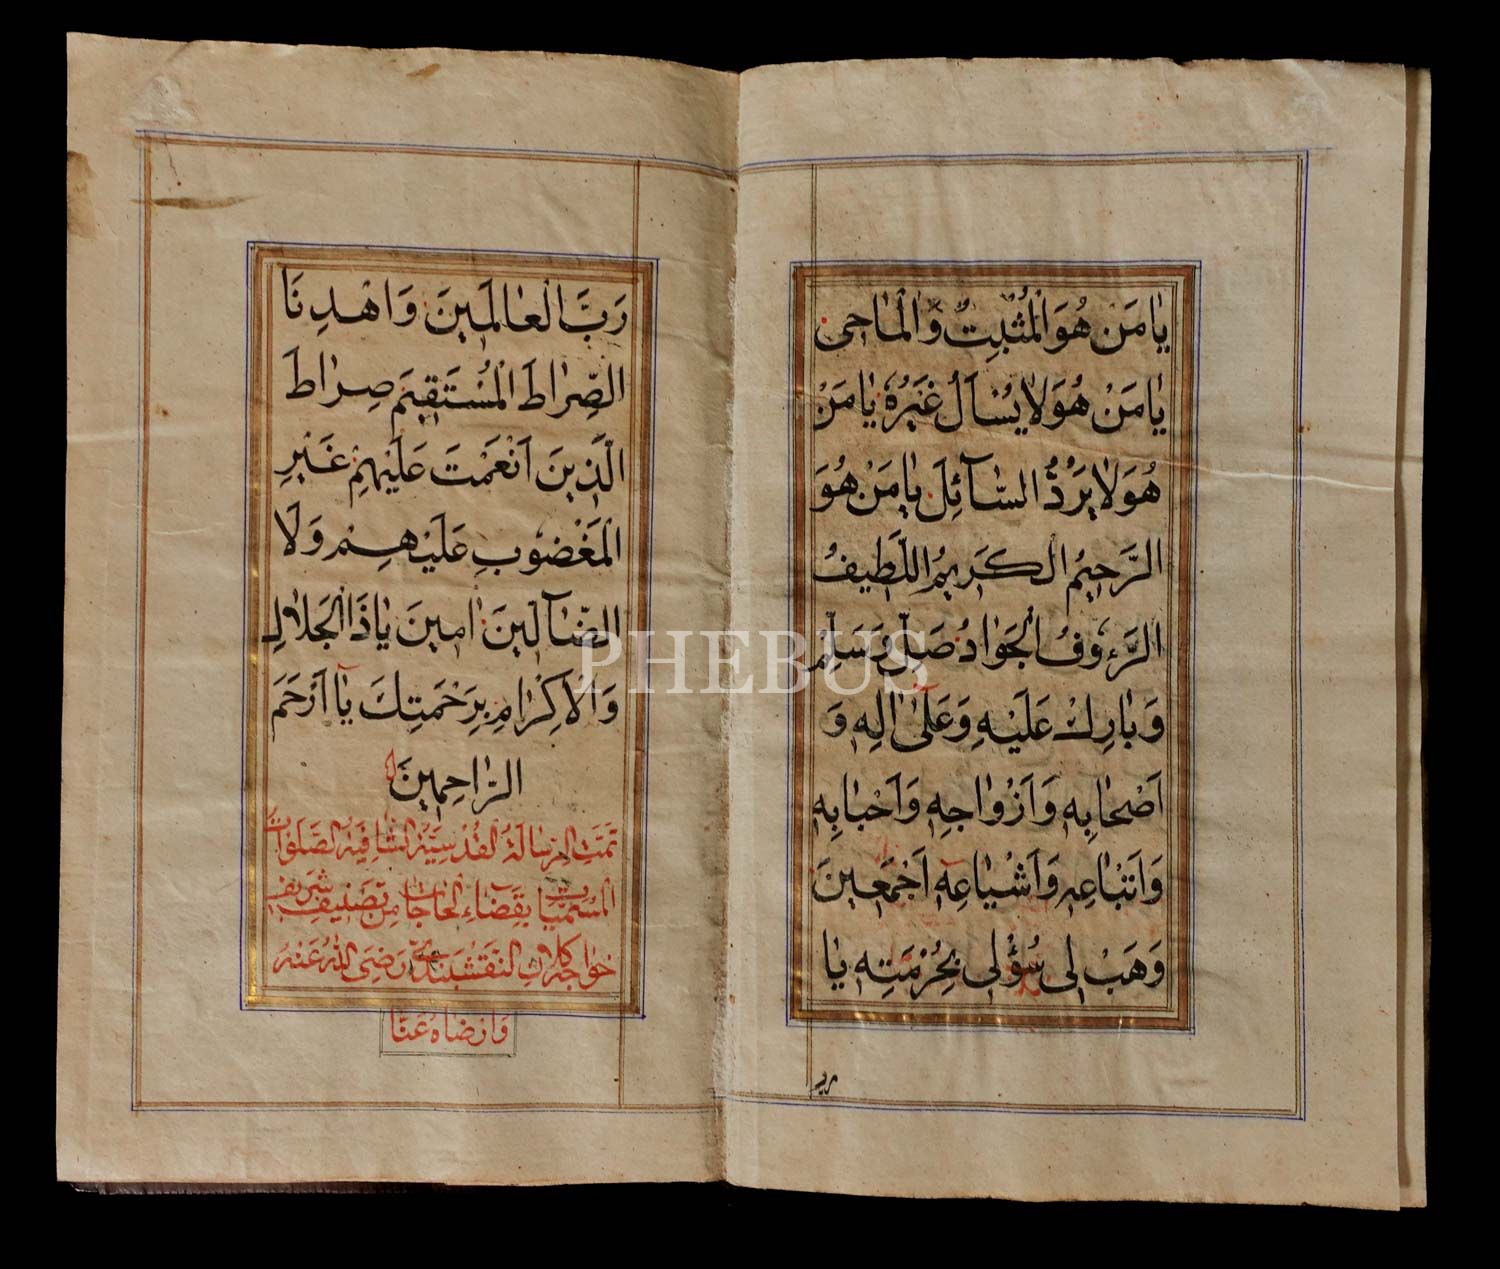 يَا مَنْ هُوَ الْمُثْبِتُ وَالْمَاحِى
يَا مَنْ هُوَ لَا يُسْأَلُ غَيْرُهُ يَا مَنْ
هُوَ لَا يَرُدُّ السَّآئِلَ يَا مَنْ هُوَ
الرَّحِيمُ الْكَرِيمُ اللَّطِيفُ
الرَّءُوفُ الْجَوَادُ صَلِّ وَسَلِّمْ
وَبَارِكْ عَلَيْهِ وَعَلَىٰ اٰلِهِ وَ
اَصْحَابِهِ وَاَزْوَاجِهِ وَاَحْبَابِهِ
وَاَتْبَاعِهِ وَاَشْيَاعِهِ اَجْمَعِينَ
وَهَبْ لِى سُؤْلِى بِحُرْمَتِهِ يَا
رب
رَبَّ الْعَالَمِينَ وَاهْدِنَا
الصِّرَاطَ الْمُسْتَقِيمَ صِرَاطَ
الَّذِينَ اَنْعَمْتَ عَلَيْهِمْ غَيْرِ
الْمَغْضُوبِ عَلَيْهِمْ وَلَا
الضَّآلِّينَ اٰمِينَ يَا ذَا الْجَلَالِ
وَالْاِكْرَامِ بِرَحْمَتِكَ يَا اَرْحَمَ
الرَّاحِمِينَ
تمت الرسالة القدسية الشافية الصلوات
المسميات بقضاء الحاجات من تصنيف شريف
خواجه كلان النقشبندى رضى الله عنه
وارضاه عنا
PHEBUS